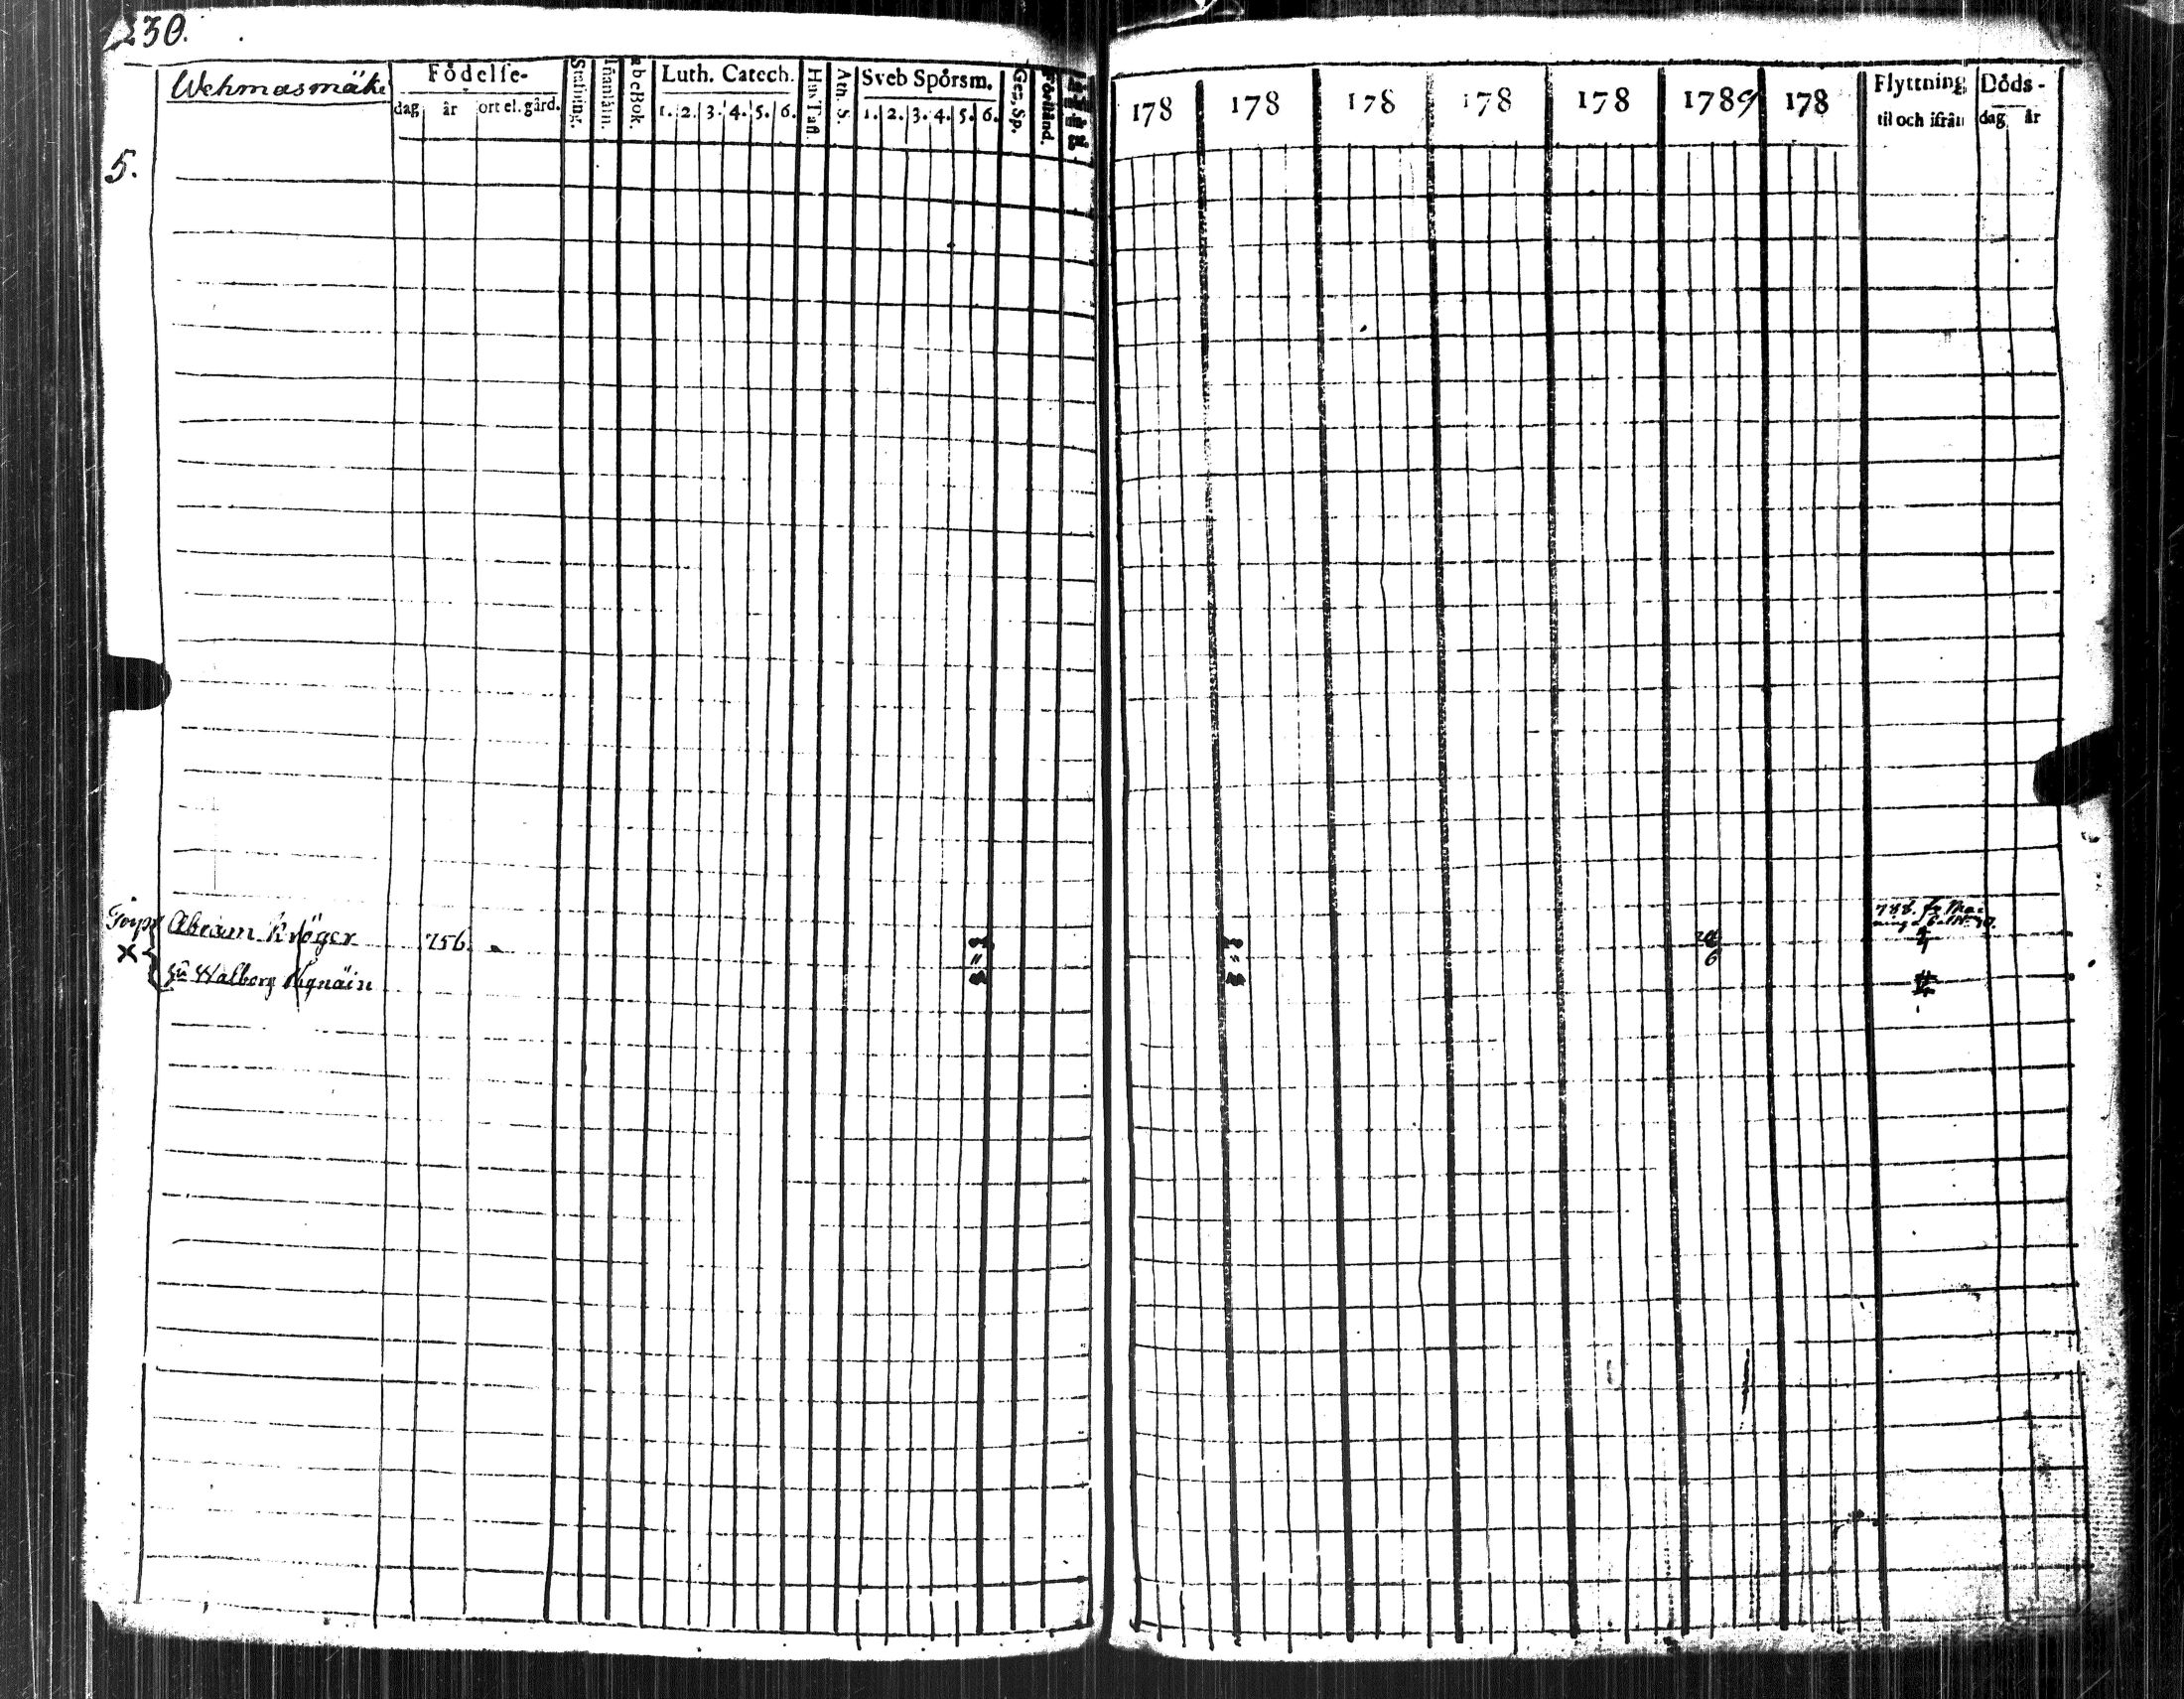 230.
Wehmasmäki
Födelse-
dag år ort el. gård.
Stafning.
Luth. Catech.
1. 2. 3. 4. 5. 6.
Hus Tafl.
Ath. S.
Sveb Spörsm.
1. 2. 3. 4. 5. 6.
Gez, Sp.
Förstånd.
178 178 178 178 178 1789 178
Flyttning
til och ifrån
Döds-
dag år
5.
Torp
Abram Kröger 756.
X
hu Walborg
788. fr
6